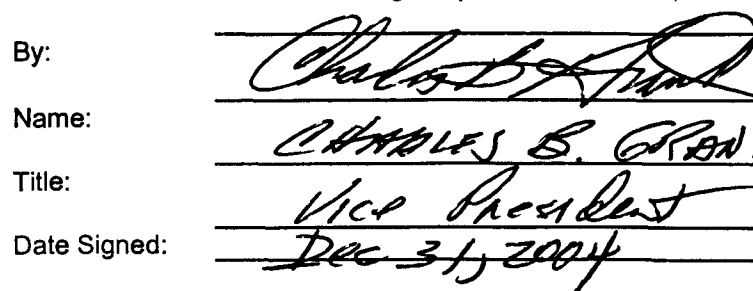 By: Charles B Grant
Name: CHARLES B. GRAN
Title: Vice President
Date Signed: Dec 31, 2004